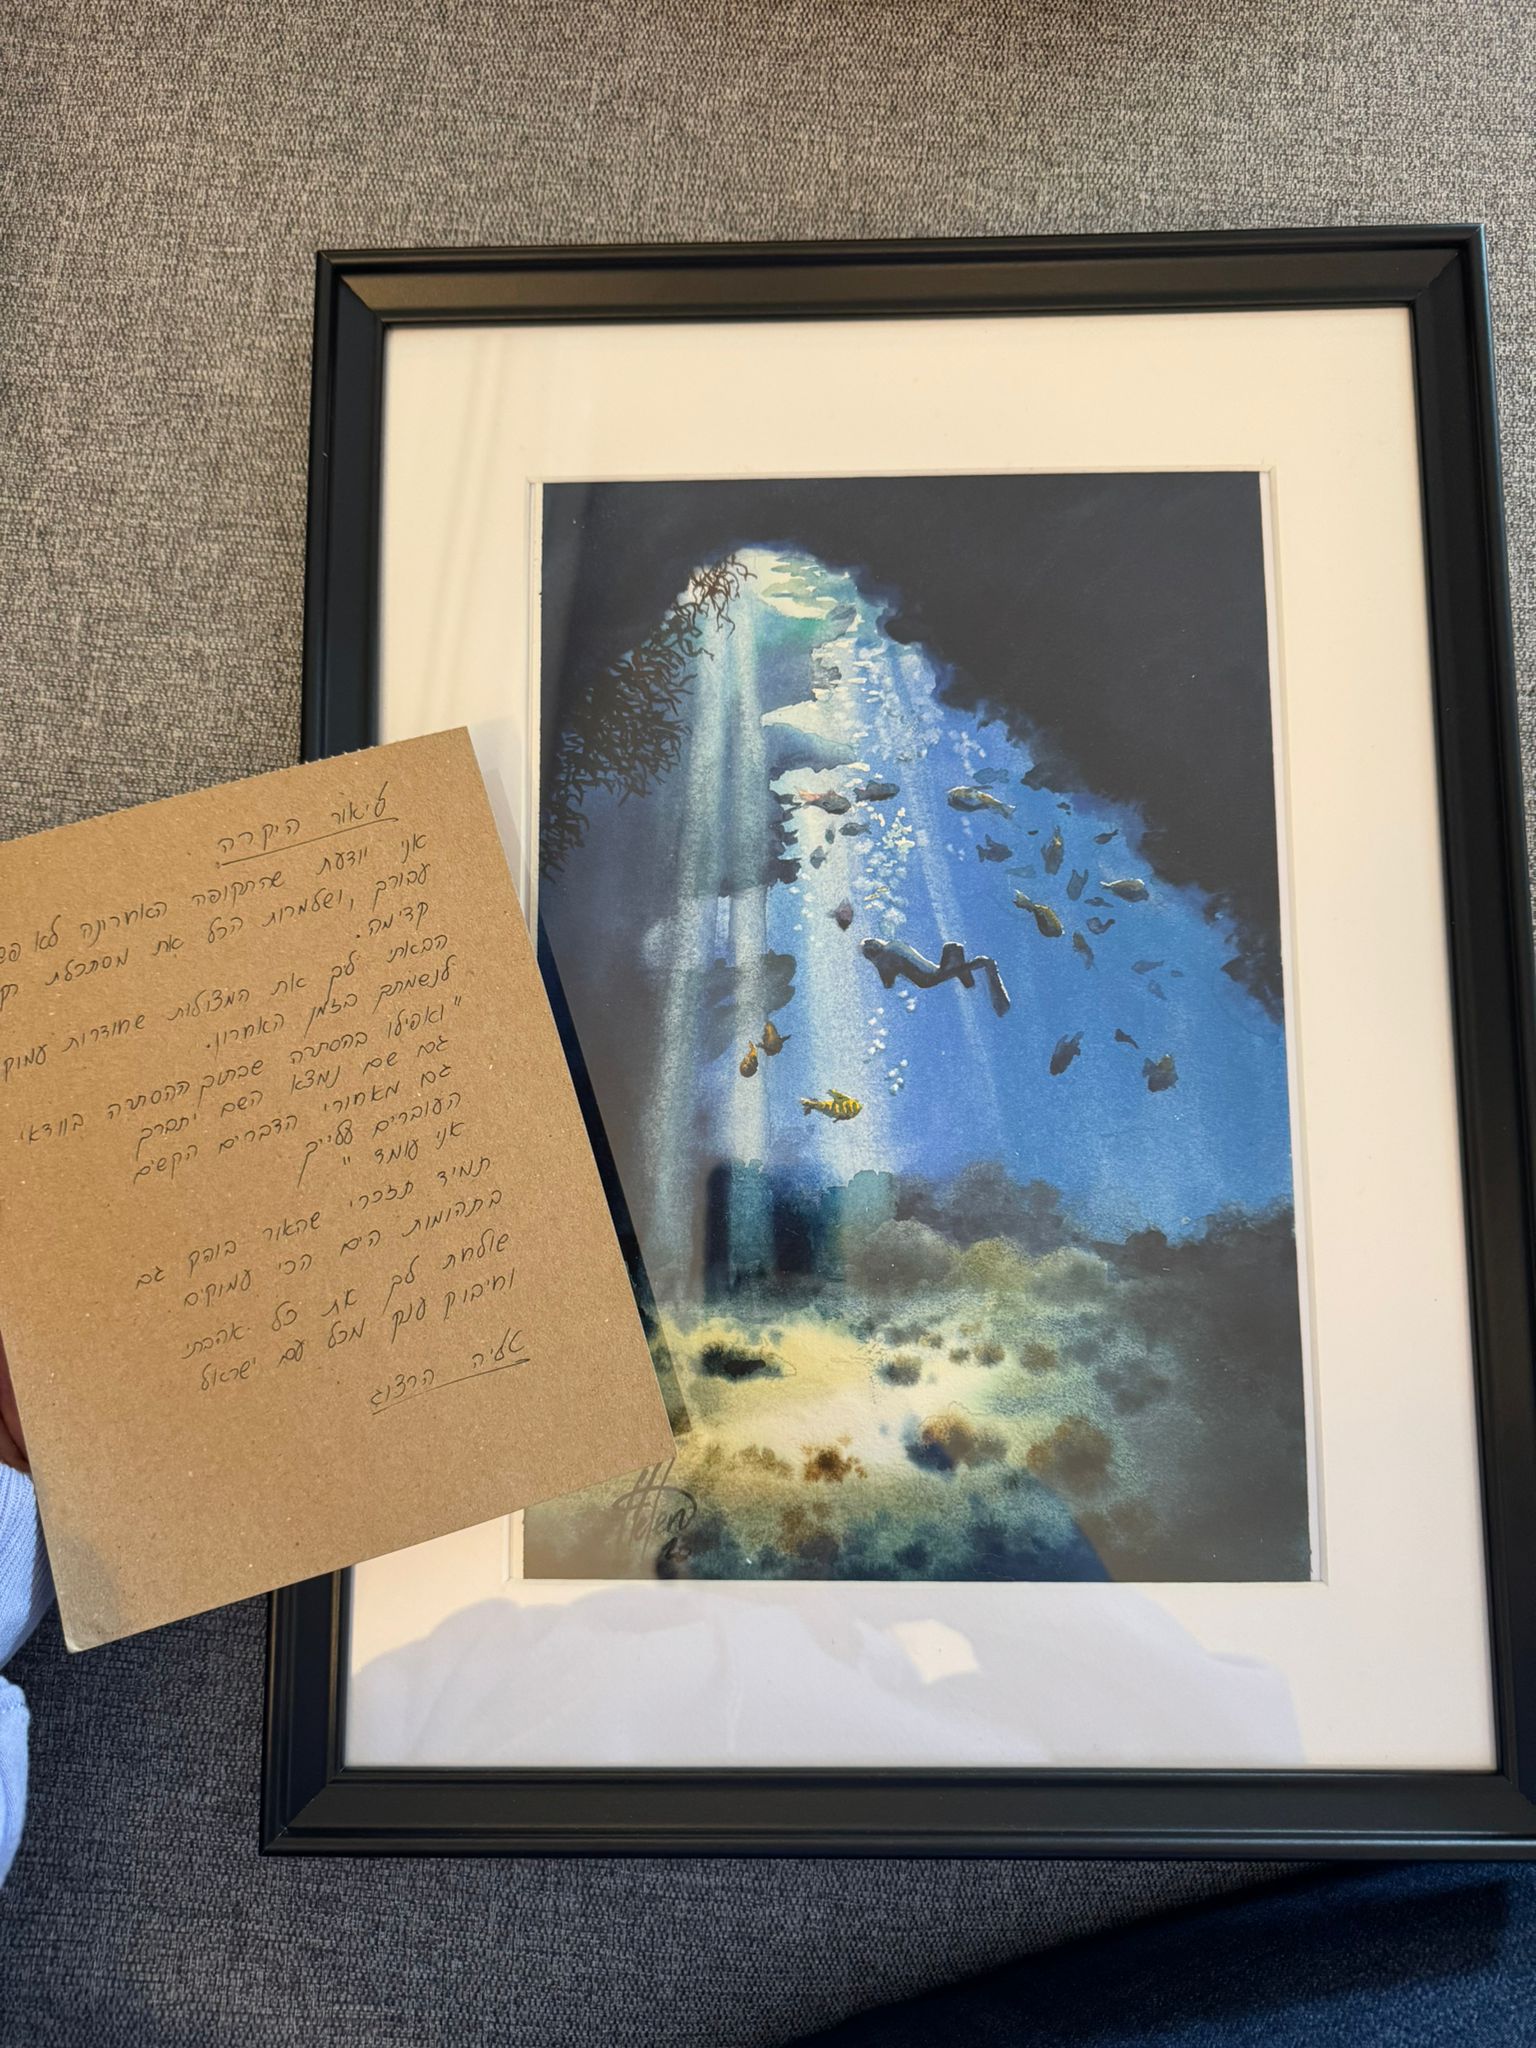 ליאור היקרה
אני יודעת שהתקופה האחרונה לא
עבורך, ושלמרות הכל את מסתכלת
קדימה.
הבאתי לך את המצולות שחודרות עמוק
לנשמתך בזמן האחרון.
"ואפילו בהסתרה שבתוך ההסתרה בוודאי
גם שם נמצא השם יתברך
גם מאחורי הדברים הקשים
העוברים עלייך
אני עומד"
תמיד תזכרי שהאור בוהק גם
בתהומות הים הכי עמוקים
שולחת לך את כל אהבתי
וחיבוק ענק מכל עם ישראל
אליה הרצוג
Helen